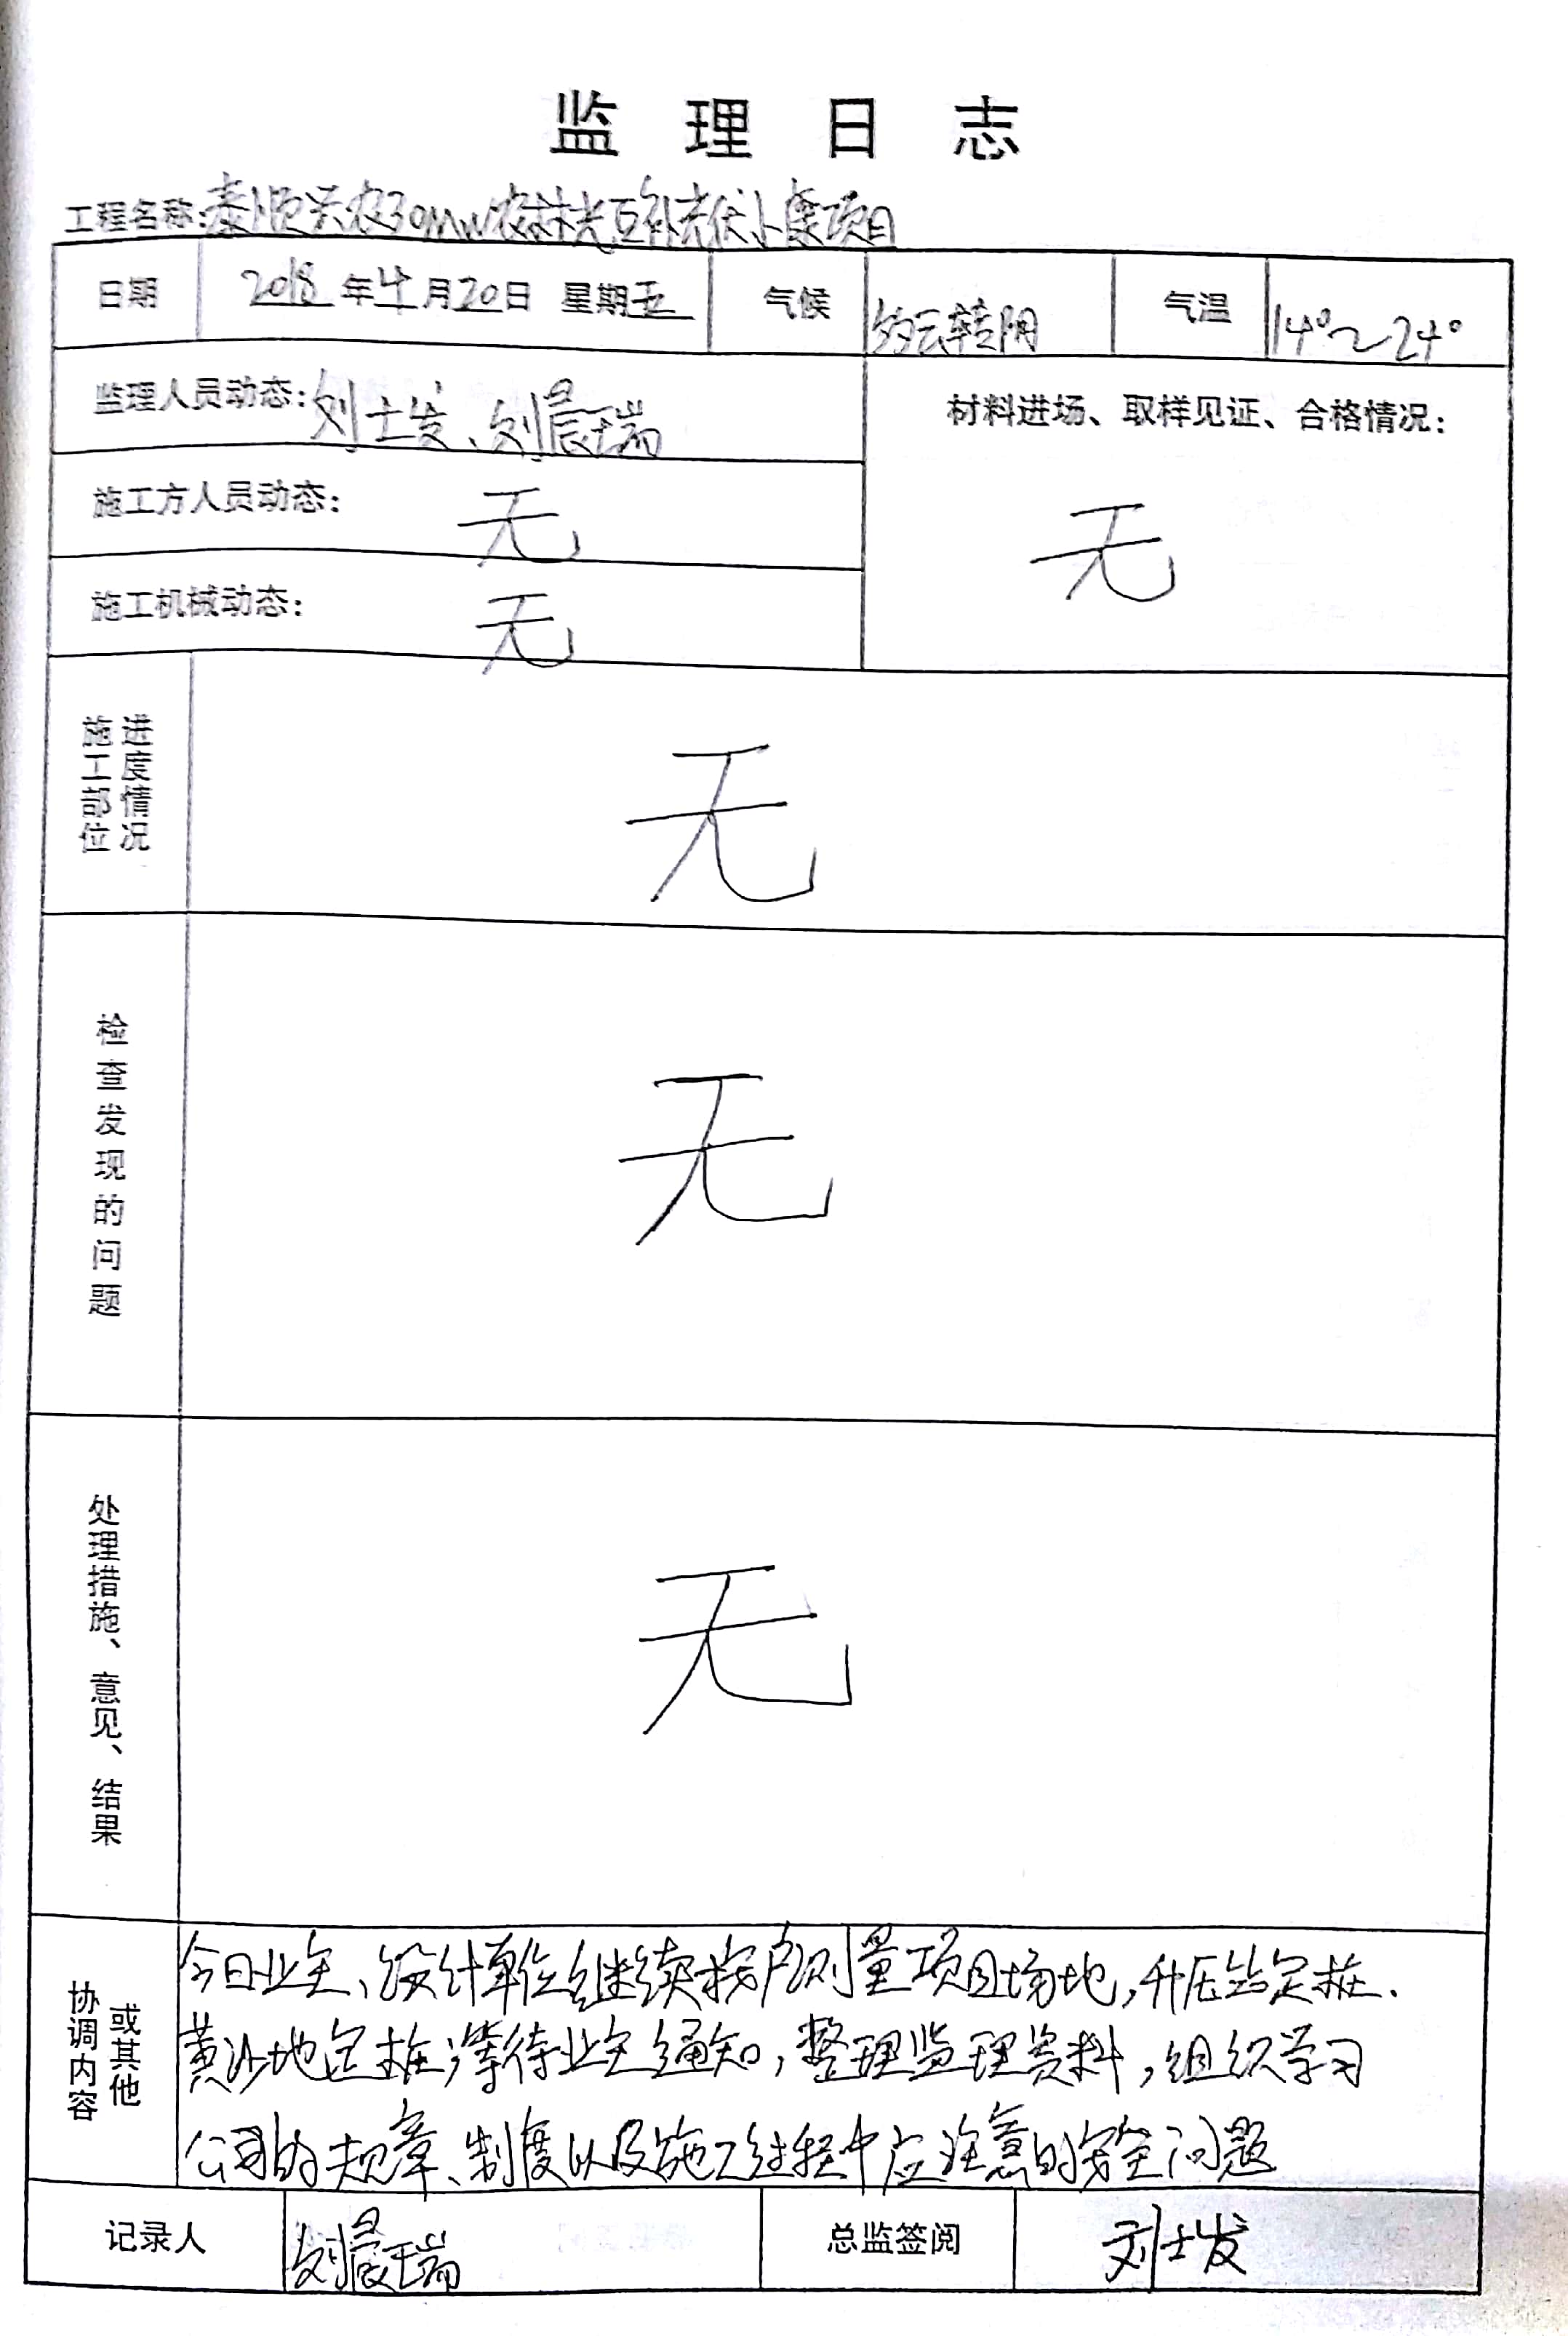 监理日志
工程名称:泰顺兴农30MW农林光互补光伏小康项目
日期 2018年4月20日 星期五 气候 多云转阴 气温 14°~24°
监理人员动态:刘士发、刘晨瑞
材料进场、取样见证、合格情况:
无
施工方人员动态: 无
施工机械动态: 无
施工部位
进度情况
无
检查发现的问题
无
处理措施、意见、结果
无
协调内容
或其他
今日业主、设计单位继续 测量项目场地,升压站定桩.
黄沙地定桩;等待业主通知,整理监理资料,组织学习
公司的规章、制度以及施工过程中应注意的安全问题
记录人 刘晨瑞 总监签阅 刘士发